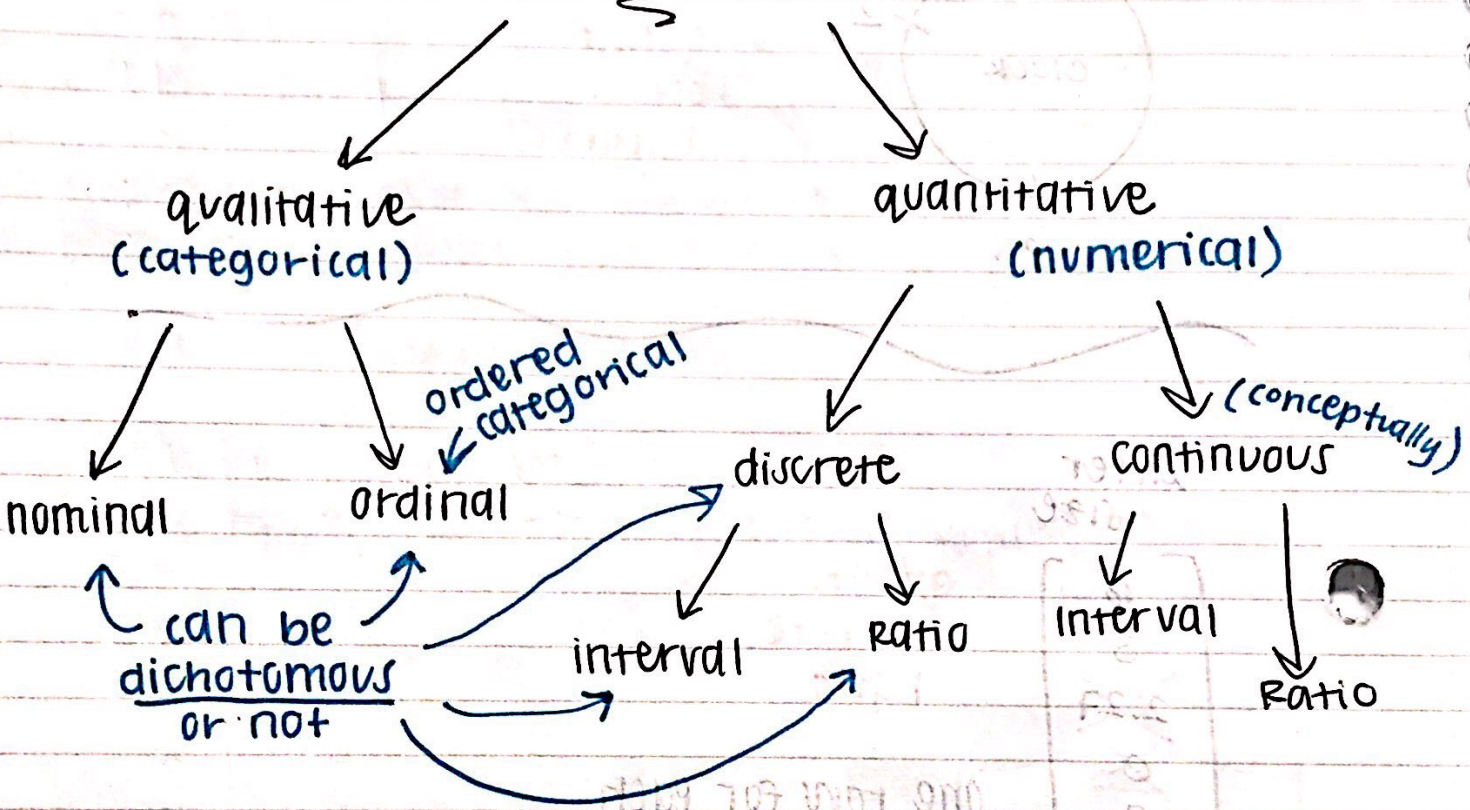 qualitative
(categorical)
quantitative
(numerical)
ordered
categorical
(conceptually)
nominal
ordinal
discrete
continuous
can be
dichotomous
or not
interval
Ratio
Interval
Ratio